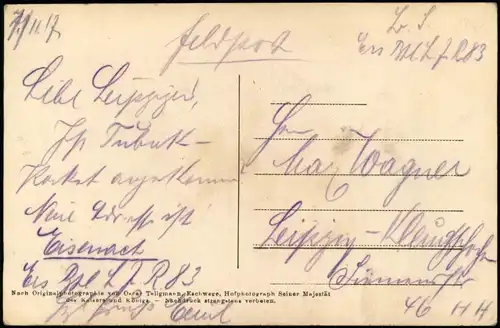 7/11.17
Feldpost
L. S.
Ers Btl L J R 83
Libe Leipziger,
Ihr Tubak-
Packet angekommen
Neue Adresse ist
Eisenach
Ers Btl L. J. R. 83
Gruß Emil
Herr
Max Wagner
Leipzig-Kleinzschocher
Siemensstr
46 H H
Nach Originalphotographie von Oscar Tellgmann, Eschwege, Hofphotograph Seiner Majestät
des Kaisers und Königs. — Nachdruck strengstens verboten.